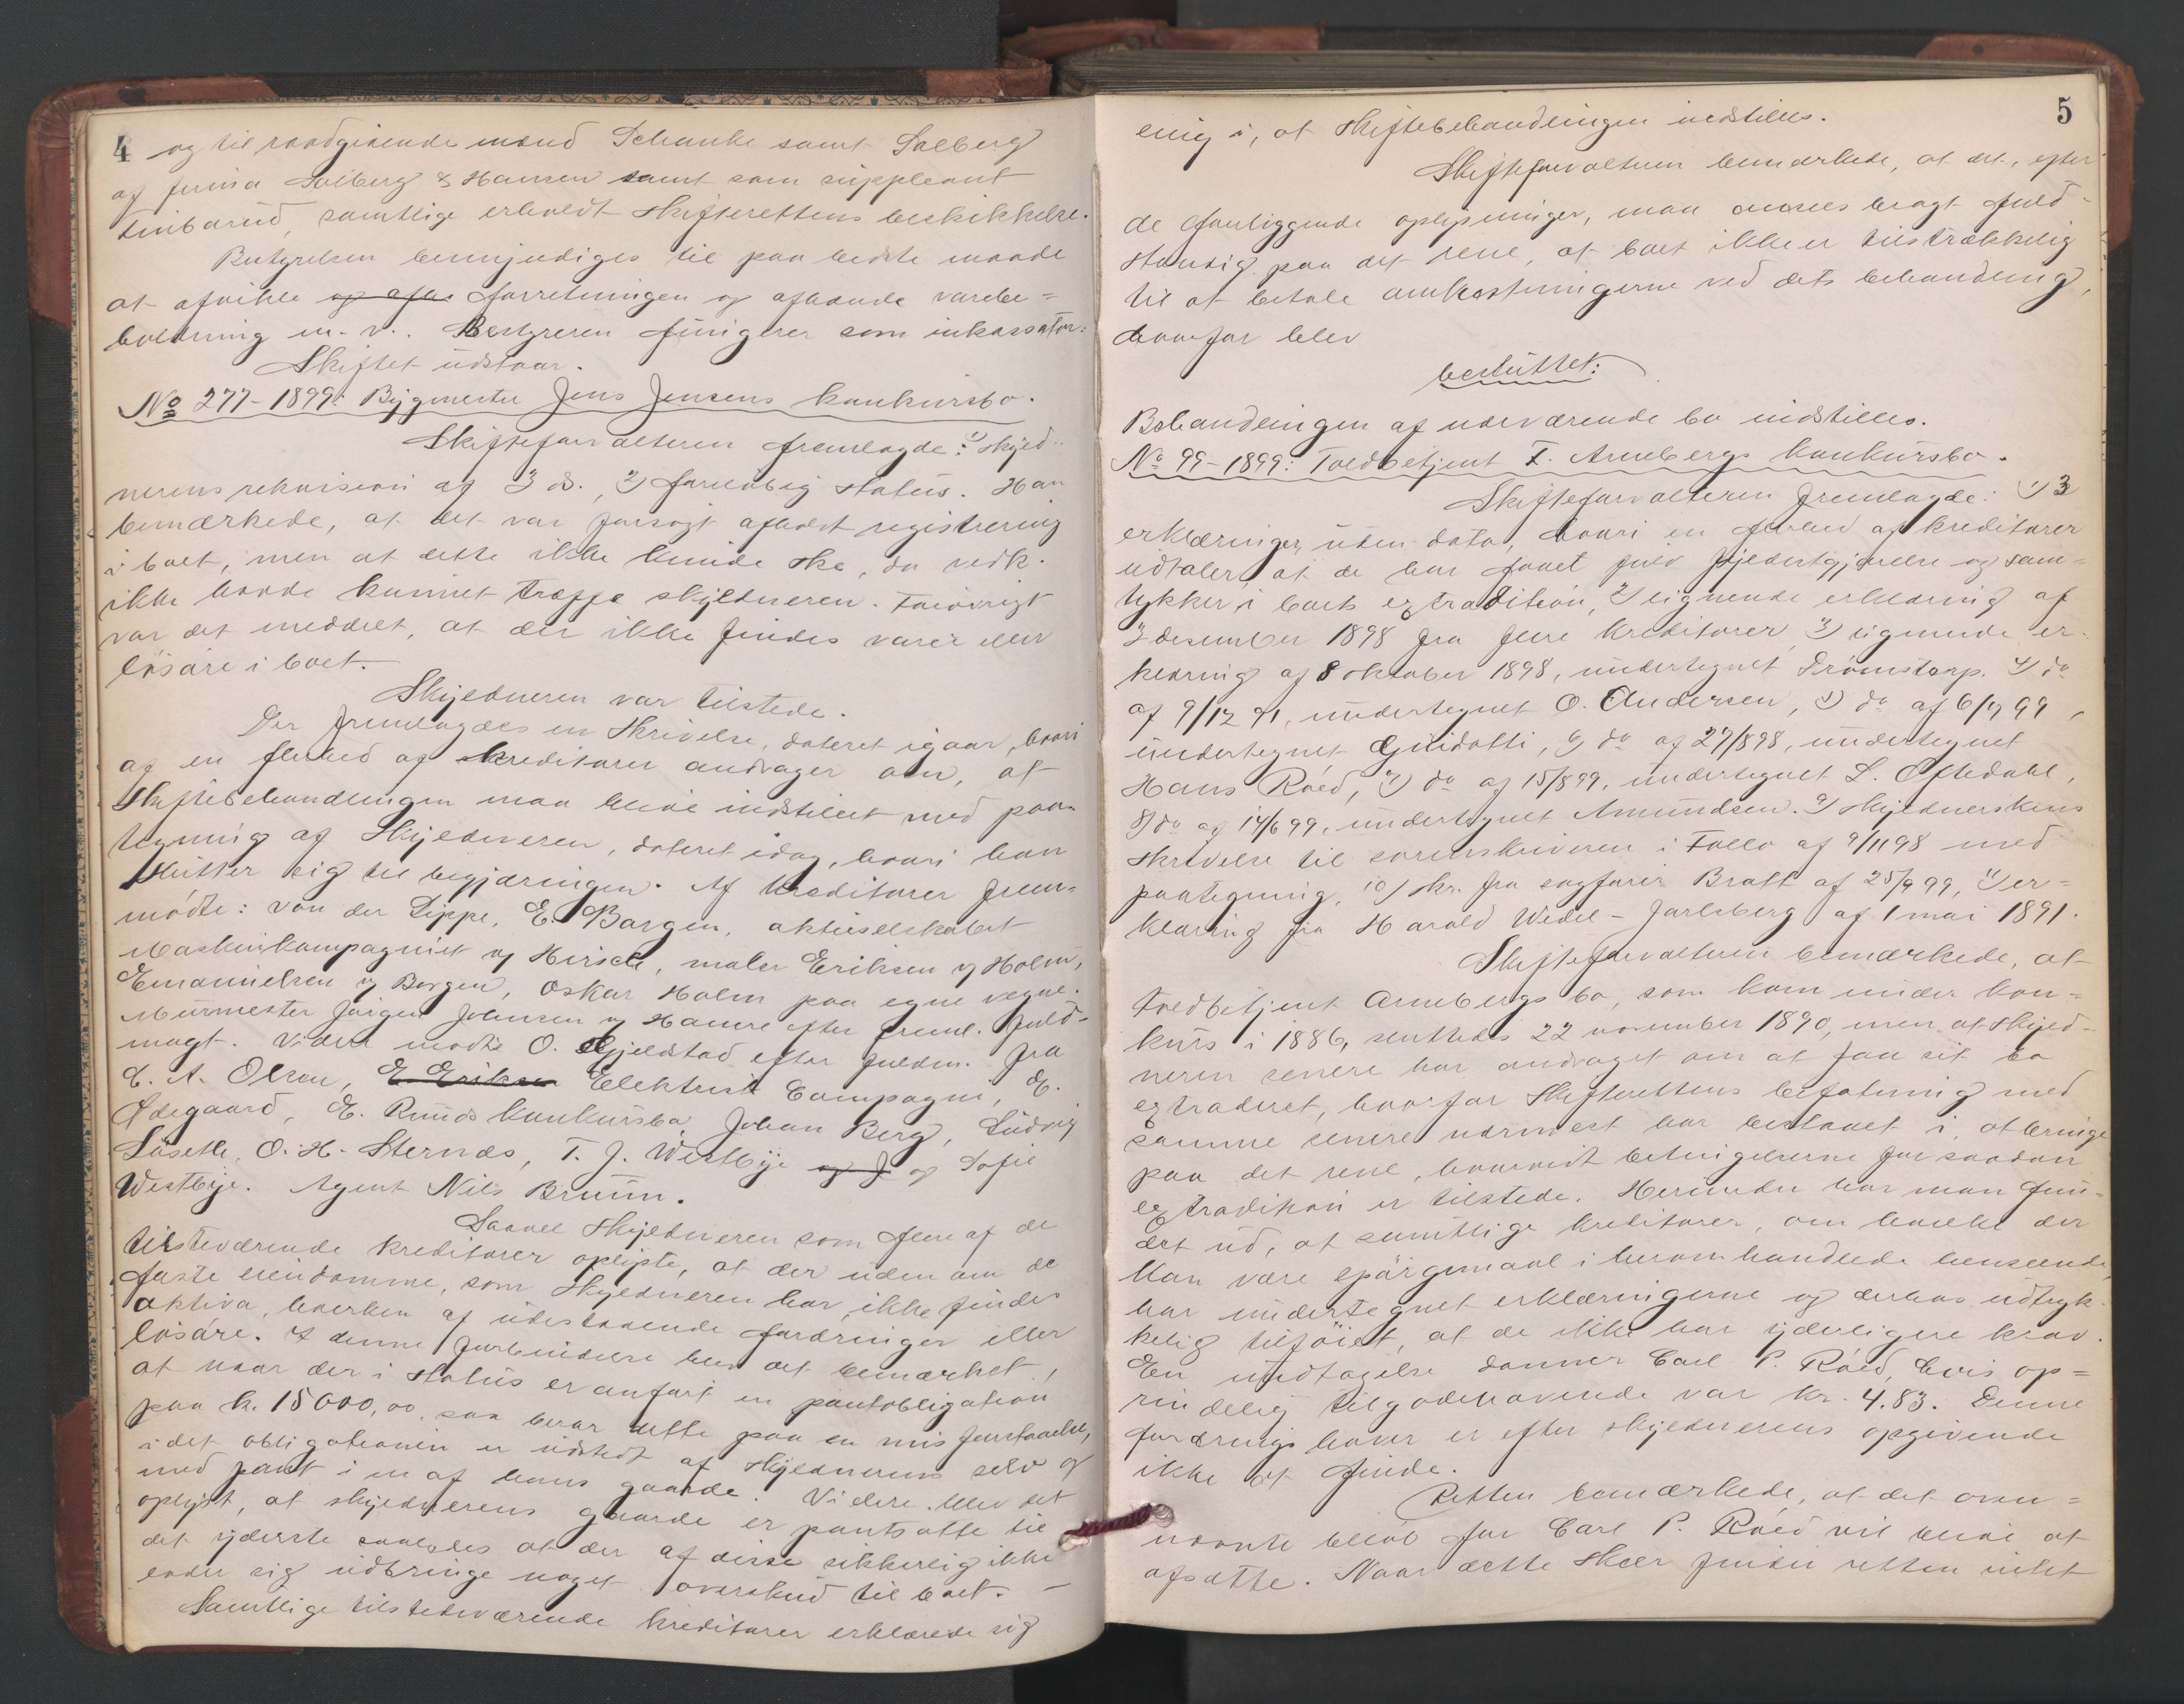 4
og til raadgivende mænd Schanke samt Solberg
af firma Solberg & Hansen samt som suppleant
samtlige erholdt skifterettens beskikkelse.
Bestyrelsen bemyndiges til paa bedste maade
at afvikle og afh forretningen og afhænde varebe=
holdning m. v. Bestyreren fungerer som inkassator.
Skiftet udstaar.
No 277-1899: Bygmester Jens Jensens konkursbo.
Skifteforvalteren fremlagde: 1) skyld-
nerens rekvisision af 3 ds., 2) foreløbig status. Han
bemærkede, at det var forsøgt afholdt registrering
i boet, men at dette ikke kunde ske, da vedk.
ikke havde kunnet træffe skyldneren. Forøvrigt
var det meddelt, at der ikke findes varer eller
løsøre i boet.
Skyldneren var tilstede.
Der fremlagdes en skrivelse, dateret igaar, hvori
af en flerhed af kreditorer andrager om, at
skiftebehandlingen maa blive indstillet med paa-
tegning af Skyldneren, dateret idag, hvori han
slutter sig til begjæringen. Af kreditorer frem-
mødte: von der Lippe, E. Borgen, aktieselskabet
Maskinkompagniet og Hirsch, maler Eriksen og Holm,
Emanuelsen og Borgen, Oskar Holm paa egne vegne.
Murmester Jørgen Johnsen og Hamre efter freml. fuld-
magt. Videre mødte O. Gjeldstad efter fuldm. fra
C. A. Olsen, E. Eriksen Elektrisk Compagni, E.
Ødegaard, E. Ruuds konkursbo, Johan Berg, Ludvig
Løseth, O. H. Sternæs, T. J. Westbye og J og Sofie
Westbye. Agent Nils Bruun.
Saavel skyldneren som flere af de
tilstedeværende kreditorer oplyste, at der uden om de
faste eiendomme, som skyldneren har, ikke findes
aktiva, hverken af udestaaende fordringer eller
løsøre. I denne forbindelse blev det bemærket,
at naar der i status er anført en pantobligation
paa k. 15000,00, saa beror dette paa en misforstaaelse,
idet obligationen er udstedt af skyldneren selv og
med pant i en af hans gaarde. Videre blev det
oplyst, at skyldnerens gaarde er pantsatte til
det yderste saaledes at der af disse sikkerlig ikke
lader sig udbringe noget overskud til boet. -
Samtlige tilstedeværende kreditorer erklærede sig
5
enig i, at skiftebehandlingen indstilles.
Skifteforvalteren bemærkede, at det, efter
de foreliggende oplysninger, maa ansees bragt fuld-
stændig paa det rene, at boet ikke er tilstrækkelig
til at betale omkostningerne ved dets behandling,
hvorfor blev
besluttet:
Behandlingen af nærværende bo indstilles.
No 99-1899: Toldbetjent F. Arnebergs konkursbo.
Skifteforvalteren fremlagde: 1) 3
erklæringer uden dato, hvori en flerhed af kreditorer
udtaler at de har faaet fuld fyldestgjørelse og sam=
tykker i boets extradition, 2) lignende erklæring af
3 desember 1898 fra flere kreditorer, 3) lignende er-
klæring af 8 oktober 1898, undertegnet Drömstorp. 4) do
af 9/12 91, undertegnet O. Andersen, 5) do af 6/9 99,
undertegnet Guidotti, 6) do af 27/898, undertegnet
Hans Røed, 7) do af 15/899, undertegnet L. Oftedahl,
8) do af 14/6 99, undertegnet Amundsen. 9) skyldnerskens
skrivelse til sorenskriveren i Follo af 9/1198 med
paategning, 10) skr. fra sagfører Bratt af 25/9 99, 11) er=
klæring fra Harald Wedel-Jarlsberg af 1 mai 1891.
Skifteforvalteren bemærkede, at
toldbetjent Arnebergs bo, som kom under kon=
kurs i 1886, sluttedes 22 november 1890, men at skyld-
neren senere har andraget om at faa sit bo
extraderet, hvorfor skifterettens befatning med
samme senere nærmest har bestaaet i, at bringe
paa det rene, hvorvidt betingelserne for saadan
extradition er tilstede. Herunder har man fun-
det ud, at samtlige kreditorer, om hvilke der
kan være spørgsmaal i heromhandlede henseende,
har undertegnet erklæringerne og derhos udtryk-
kelig tilføiet, at de ikke har yderligere krav.
En undtagelse danner Carl P. Røed, hvis op=
rindelig tilgodehavende var kr. 4.83. Denne
fordringshaver er efter skyldnerens opgivende
ikke at finde.
Retten bemærkede, at det oven=
nævnte beløb for Carl P. Røed vil blive at
afsætte. Naar dette sker finder retten intet